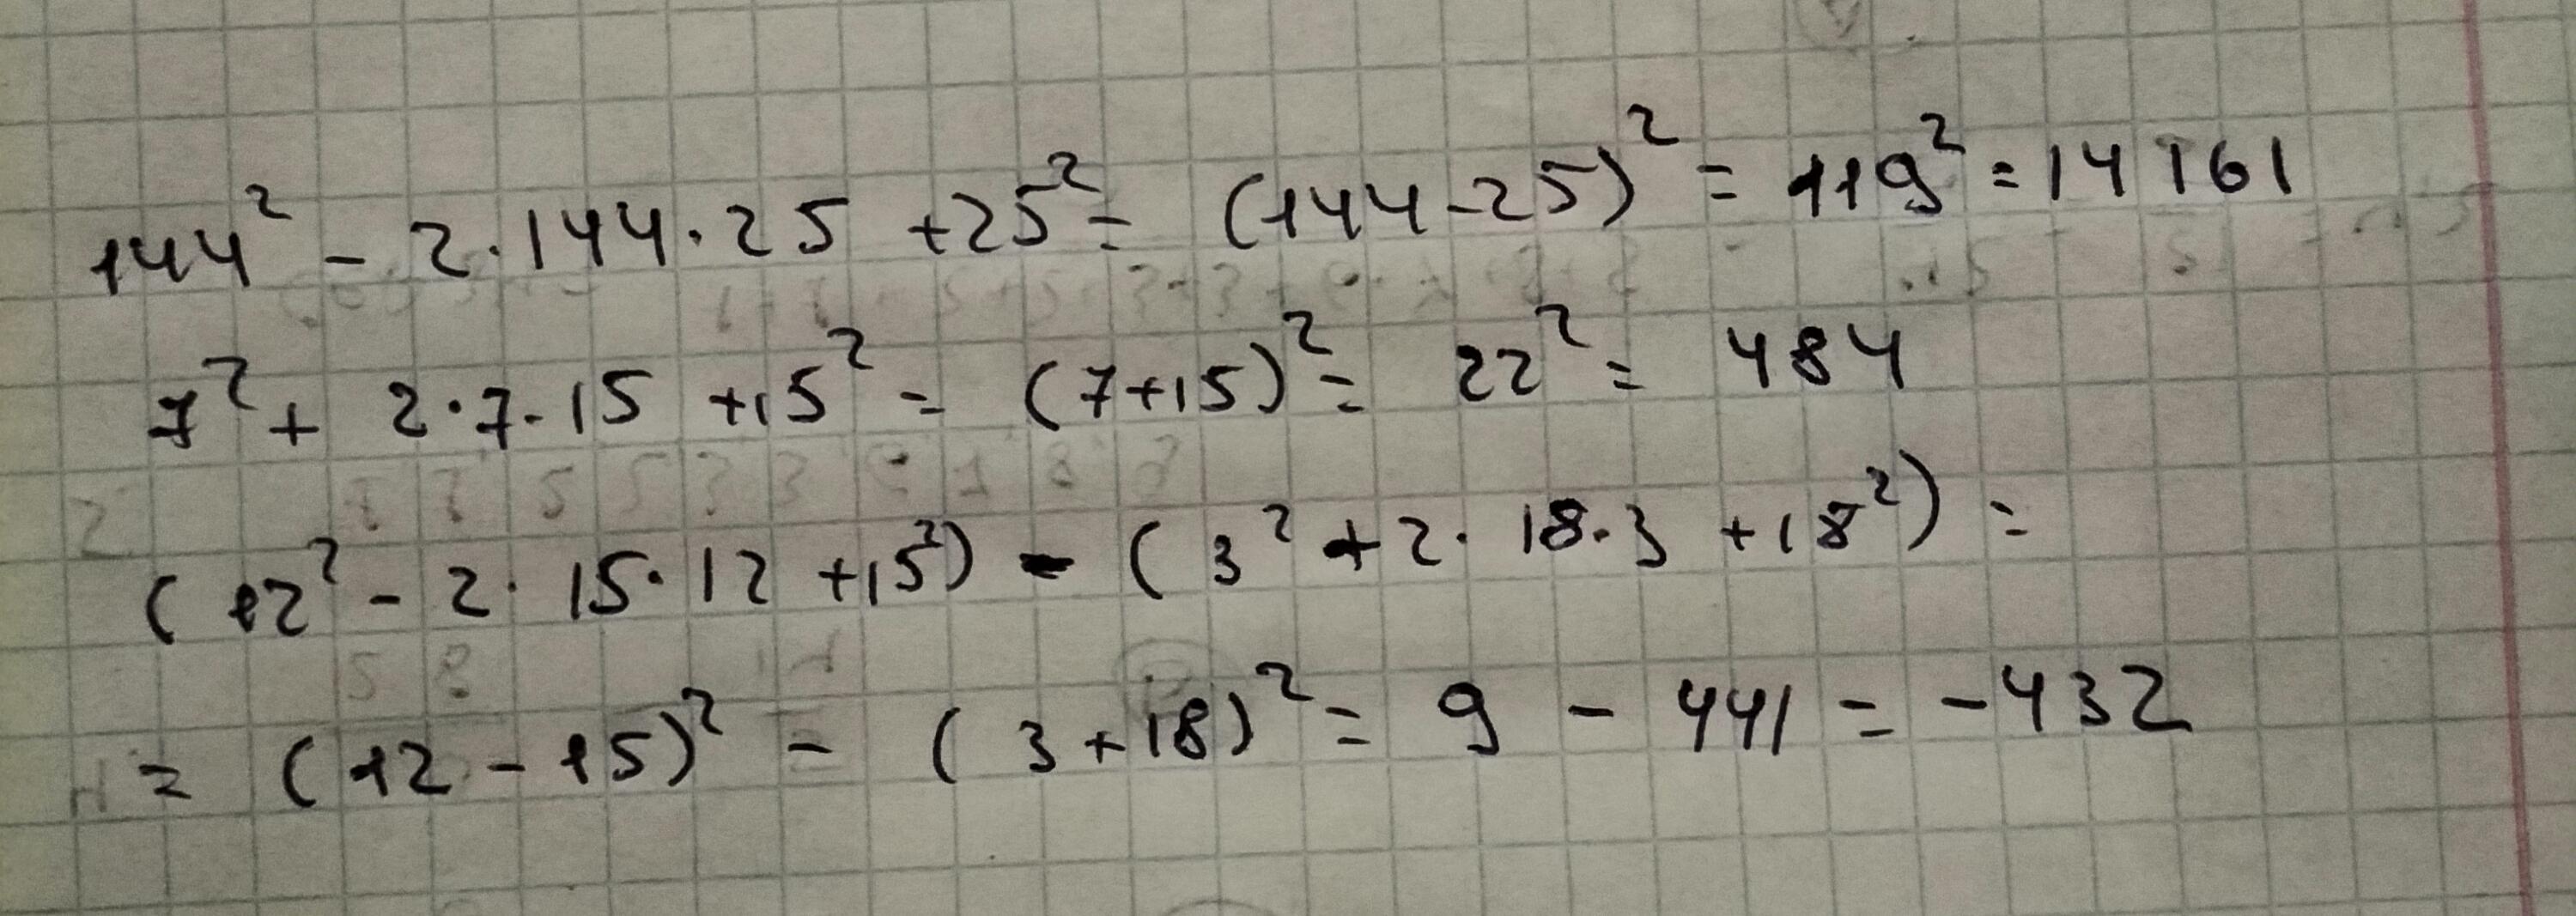 144² - 2·144·25 +25² = (144-25)² = 119² = 14161
7² + 2·7·15 +15² = (7+15)² = 22² = 484
(12² - 2·15·12 +15²) - (3² + 2·18·3 +18²) =
= (12-15)² - (3+18)² = 9 - 441 = -432